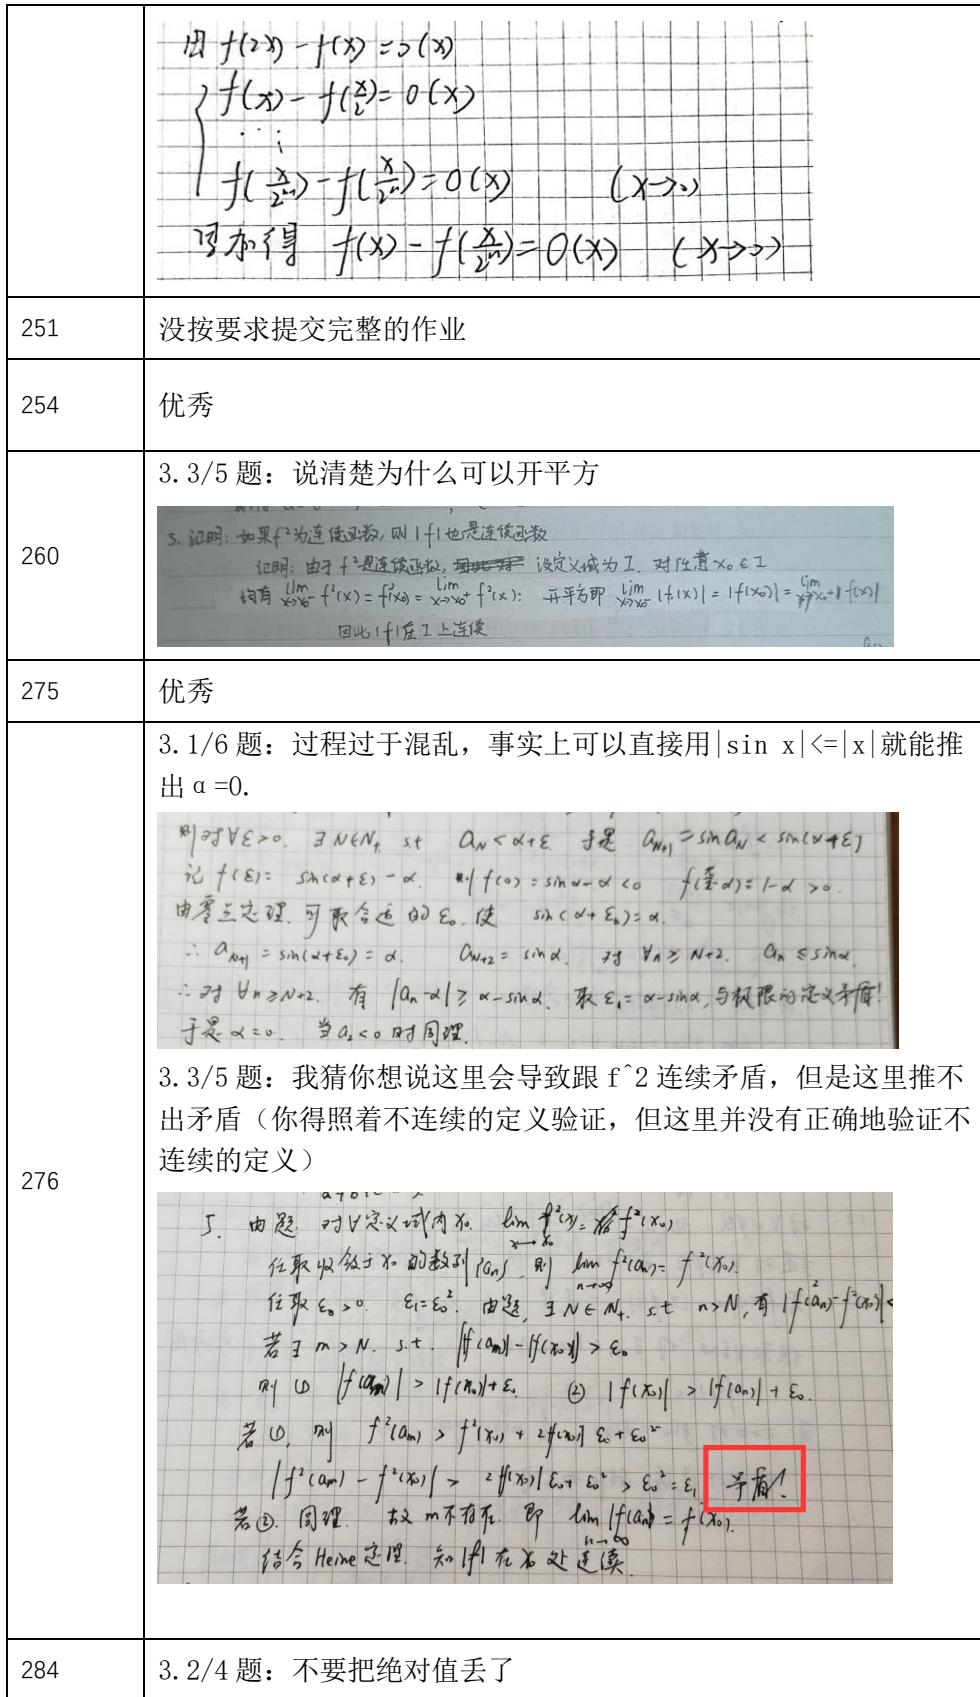 因 f(2x) - f(x) = o(x)
f(x) - f(x/2) = o(x)
⋮
f(x/2^{n-1}) - f(x/2^n) = o(x) (x→0)
得 f(x) - f(x/2^n) = o(x) (x→0)
251 没按要求提交完整的作业
254 优秀
3.3/5 题：说清楚为什么可以开平方
260
5. 证明：如果f²为连续函数, 则 |f| 也是连续函数
证明：由于 f²是连续函数, 设定义域为 I. 对任意 x₀∈I
均有 lim x→x₀⁻ f²(x) = f²(x₀) = lim x→x₀⁺ f²(x)： 开平方即 lim x→x₀⁻ |f(x)| = |f(x₀)| = lim x→x₀⁺ |f(x)|
因此 |f| 在 I 上连续
275 优秀
3.1/6 题：过程过于混乱，事实上可以直接用|sin x|<=|x|就能推
出 α=0.
则对∀ε>0. ∃N∈N₊ s.t a_N < α+ε. 于是 a_{N+1} = sin a_N < sin(α+ε)
记 f(ε) = sin(α+ε) - α. 则 f(0) = sinα - α < 0 f(π/2 - α) = 1-α > 0.
由零点定理. 可取合适的 ε₀. 使 sin(α+ε₀) = α.
∴ a_{N+1} = sin(α+ε₀) = α. a_{N+2} = sinα. 对 ∀n ≥ N+2. a_n ≤ sinα.
∴ 对 ∀n ≥ N+2. 有 |a_n - α| ≥ α - sinα. 取 ε₁ = α - sinα, 与极限的定义矛盾!
于是 α=0. 当 a₂<0 时同理.
3.3/5 题：我猜你想说这里会导致跟 f^2 连续矛盾，但是这里推不
出矛盾（你得照着不连续的定义验证，但这里并没有正确地验证不
连续的定义）
276
5. 由题. 对∀定义域内 x₀. lim x→x₀ f²(x) = f²(x₀)
任取收敛于 x₀ 的数列 {a_n}, 则 lim n→∞ f²(a_n) = f²(x₀).
任取 ε₀ > 0. ε₁ = ε₀². 由题, ∃N∈N₊. s.t n>N, 有 |f²(a_n) - f²(x₀)| <
若∃ m > N. s.t. ||f(a_m)| - |f(x₀)|| > ε₀
则 ① |f(a_m)| > |f(x₀)| + ε₀ ② |f(x₀)| > |f(a_n)| + ε₀.
若①, 则 f²(a_m) > f²(x₀) + 2|f(x₀)| ε₀ + ε₀²
|f²(a_m) - f²(x₀)| > 2|f(x₀)| ε₀ + ε₀² > ε₀² = ε₁ 矛盾!
若②. 同理. 故 m不存在. 即 lim n→∞ |f(a_n)| = f(x₀).
结合 Heine 定理. 知 |f| 在 x₀ 处连续.
284 3.2/4 题：不要把绝对值丢了